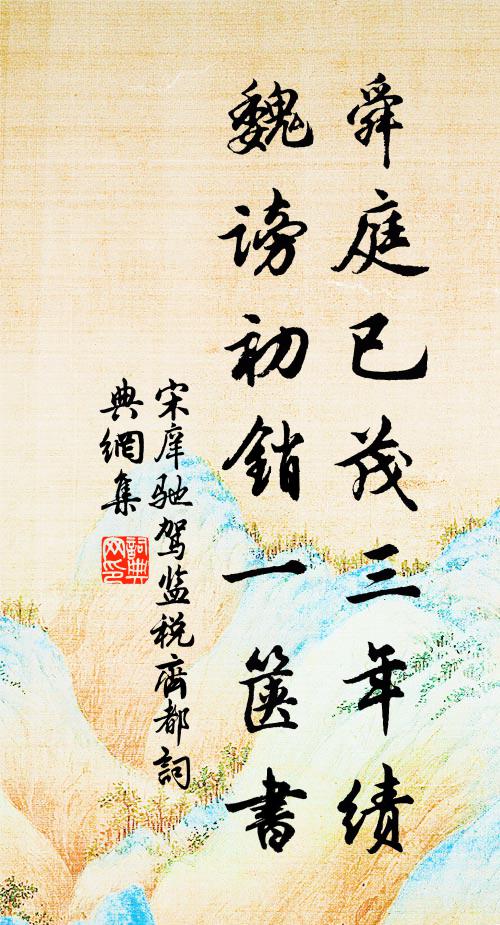 舜庭已茂三年绩
魏谤初销一箧書
宋庠驰驾监税齊都詞
典網集
詞典
网印